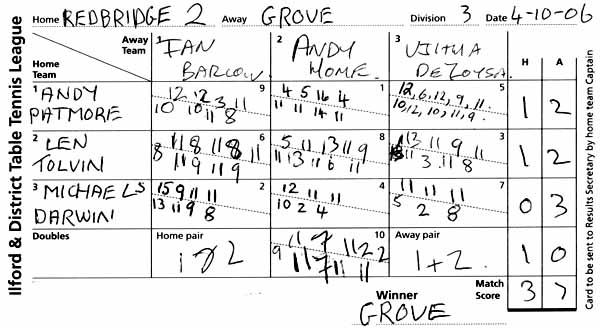 Ilford & District Table Tennis League
Home REDBRIDGE 2 Away GROVE Division 3 Date 4-10-06
Away Team
Home Team
1 IAN BARLOW
2 ANDY HOME
3 DEZOYSA
H A
1 ANDY PATMORE
9
12 12 3 11
10 10 11 8
1
4 5 16 4
11 11 14 11
5
12, 6, 12, 9, 11
10, 12, 10, 11, 9
1 2
2 LEN TOLVIN
6
11 8 11 8 11
8 11 9 11 9
8
5 11 13 11 9
11 13 11 6 11
3
13 11 9 11
11 3 11 8
1 2
3 MICHAEL S DARWIN
2
15 9 11 11
13 11 9 8
4
12 11 11
10 2 4
7
11 11 11
5 2 8
0 3
Doubles
Home pair
1 & 2
10
Away pair
1 + 2
1 0
Winner GROVE
Match Score 3 7
Card to be sent to Results Secretary by home team Captain